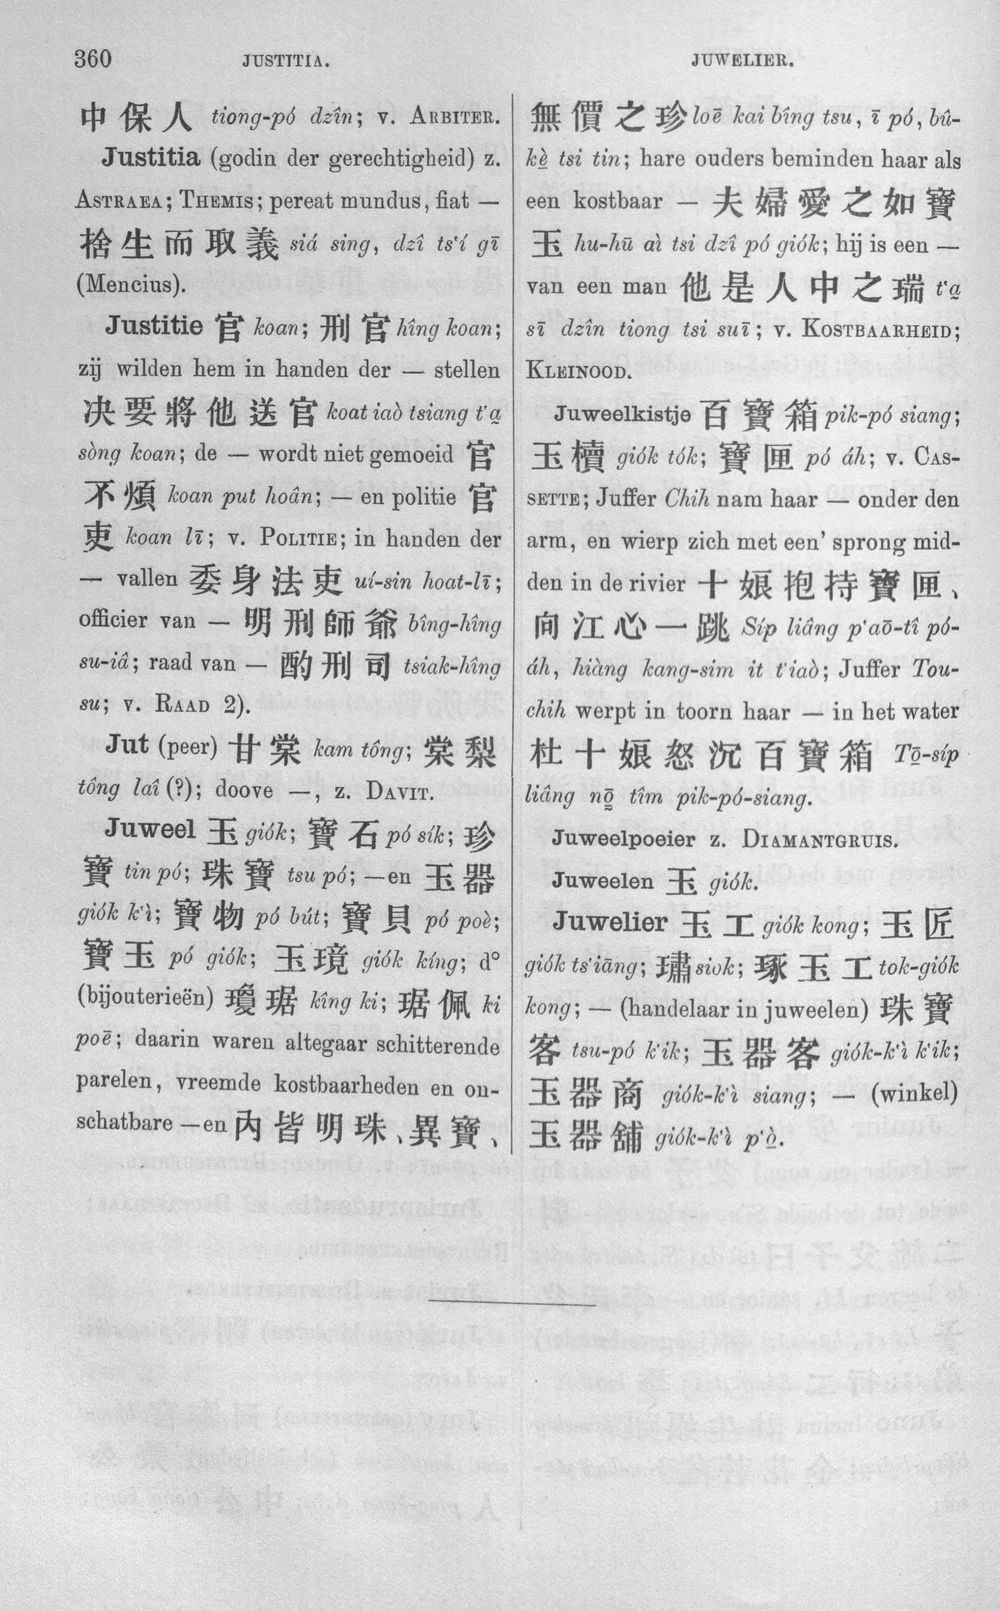 360 JUSTITIA. JUWELIER.
中保人 tiong-pó dzîn; v. ARBITER.
Justitia (godin der gerechtigheid) z.
ASTRAEA; THEMIS; pereat mundus, fiat —
捨生而取義 siá sing, dzî ts'í gī
(Mencius).
Justitie 官 koan; 刑官 hîng koan;
zij wilden hem in handen der — stellen
决要將他送官 koat iaò tsiang t'a̠
sòng koan; de — wordt niet gemoeid 官
不煩 koan put hoân; — en politie 官
吏 koan lī; v. POLITIE; in handen der
— vallen 委身法吏 uí-sin hoat-lī;
officier van — 明刑師爺 bîng-hîng
su-iâ; raad van — 酌刑司 tsiak-hîng
su; v. RAAD 2).
Jut (peer) 甘棠 kam tông; 棠梨
tông laî (?); doove —, z. DAVIT.
Juweel 玉 giók; 寶石 pó sík; 珍
寶 tin pó; 珠寶 tsu pó; — en 玉器
giók k'ì; 寶物 pó bút; 寶貝 pó poè;
寶玉 pó giók; 玉璄 giók kíng; d°
(bijouterieën) 瓊琚 kîng ki; 琚佩 ki
poē; daarin waren altegaar schitterende
parelen, vreemde kostbaarheden en on-
schatbare — en 內皆明珠、異寶、
無價之珍 loē kai bîng tsu, ī pó, bû-
kè̠ tsi tin; hare ouders beminden haar als
een kostbaar — 夫婦愛之如寶
玉 hu-hū aì tsi dzî pó giók; hij is een —
van een man 他是人中之瑞 t'a̠
sī dzîn tiong tsi suī; v. KOSTBAARHEID;
KLEINOOD.
Juweelkistje 百寶箱 pik-pó siang;
玉櫝 giók tók; 寶匣 pó áh; v. CAS-
SETTE; Juffer Chih nam haar — onder den
arm, en wierp zich met een' sprong mid-
den in de rivier 十娘抱持寶匣、
向江心一跳 Síp liâng p'aō-tî pó-
áh, hiàng kang-sim it t'iaò; Juffer Tou-
chih werpt in toorn haar — in het water
杜十娘怒沉百寶箱 Tō̠-síp
liâng nō̠ tîm pik-pó-siang.
Juweelpoeier z. DIAMANTGRUIS.
Juweelen 玉 giók.
Juwelier 玉工 giók kong; 玉匠
giók ts'iāng; 璛 siok; 琢玉工 tok-giók
kong; — (handelaar in juweelen) 珠寶
客 tsu-pó k'ik; 玉器客 giók-k'ì k'ik;
玉器商 giók-k'ì siang; — (winkel)
玉器舖 giók-k'ì p'ò̠.